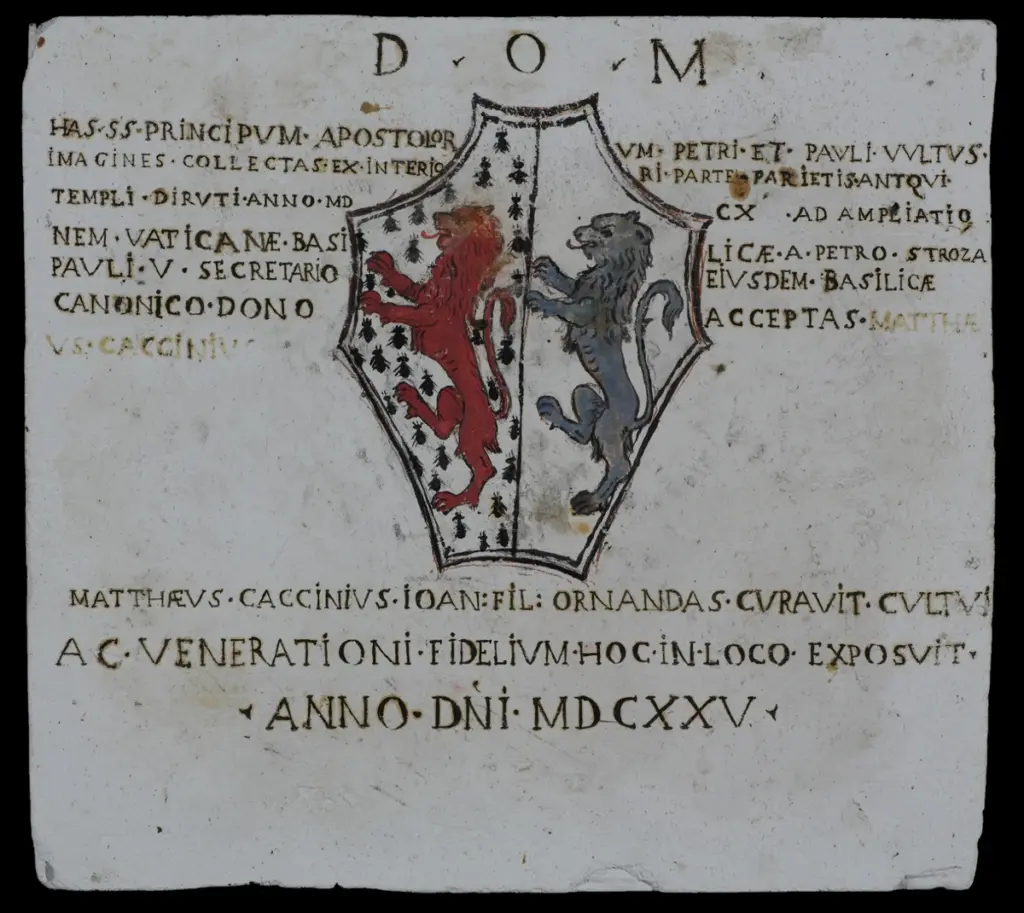 D · O · M
HAS·SS·PRINCIPVM·APOSTOLOR VM·PETRI·ET·PAVLI·VVLTVS·
IMAGINES·COLLECTAS·EX·INTERIO RI·PARTE·PARIETIS·ANTQVI·
TEMPLI·DIRVTI·ANNO·MD CX ·AD AMPLIATIO
NEM·VATICANÆ·BASI LICÆ·A·PETRO·STROZA
PAVLI·V·SECRETARIO EIVSDEM·BASILICÆ
CANONICO·DONO ACCEPTAS·MATTHÆ
VS·CACCINIVS
MATTHÆVS·CACCINIVS·IOAN:FIL: ORNANDAS·CVRAVIT·CVLTVI
AC·VENERATIONI·FIDELIVM·HOC·IN·LOCO·EXPOSVIT·
ANNO·DÑI·MDCXXV